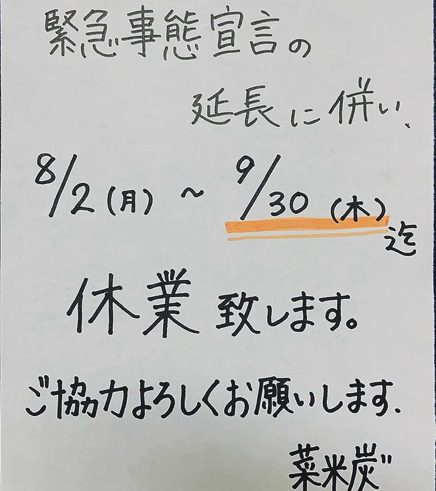 緊急事態宣言の
延長に併い、
8/2(月) ~ 9/30(木)
迄
休業致します。
ご協力よろしくお願いします.
菜米炭"